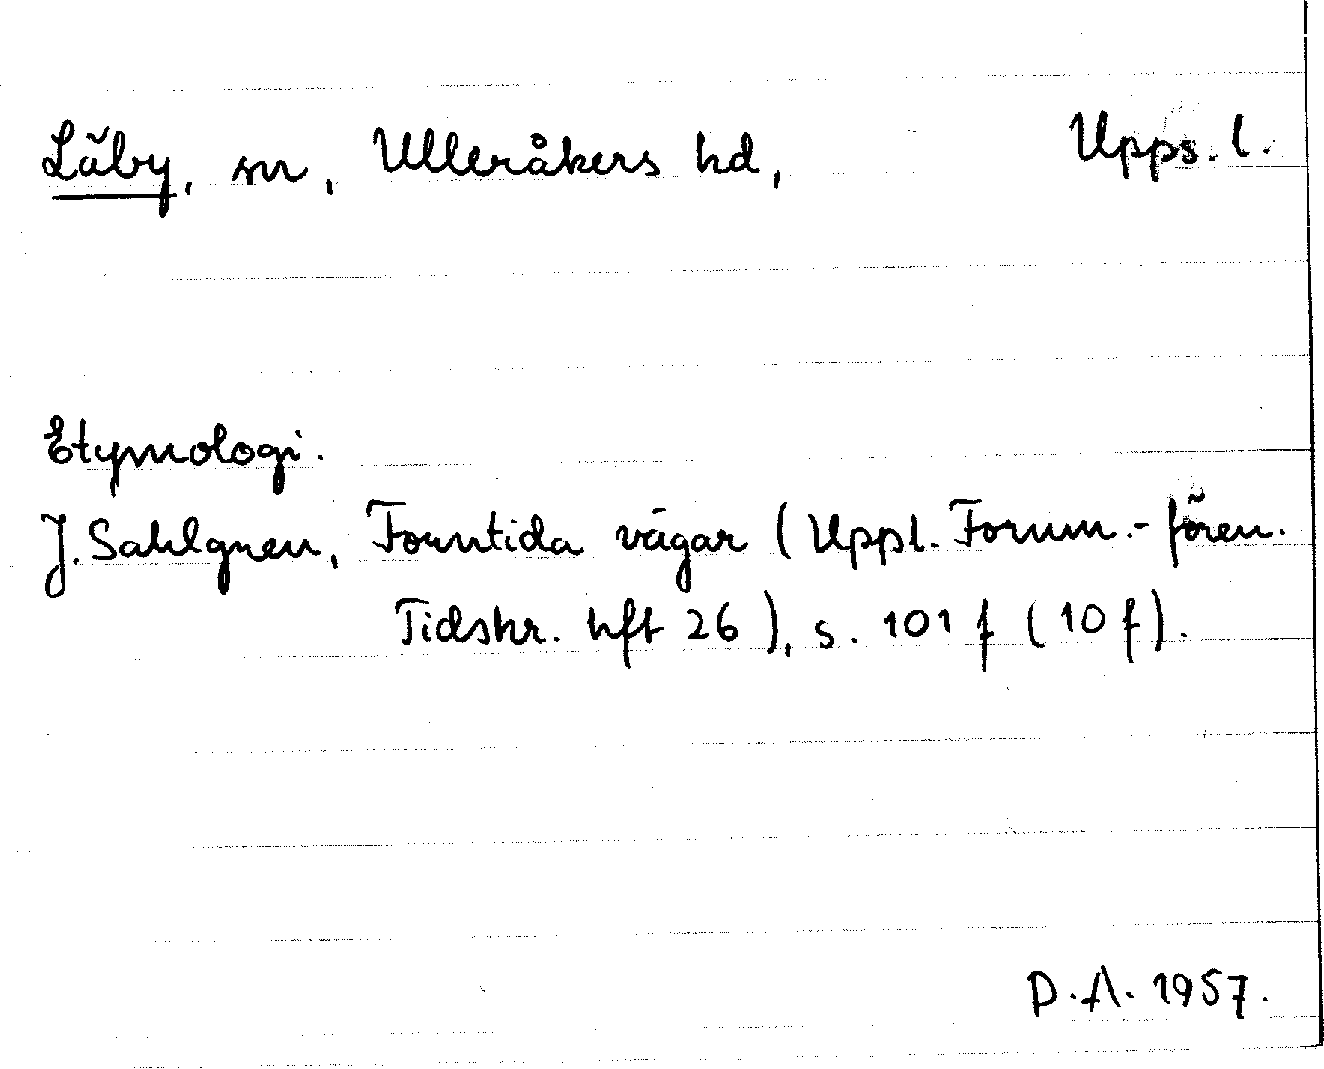 Läby, sn, Ulleråkers hd, Upps. l.
Etymologi.
J. Sahlgren, Forntida vägar (Uppl. Fornm.-fören.
Tidskr. hft 26), s. 101 f (10 f).
D.A. 1957.